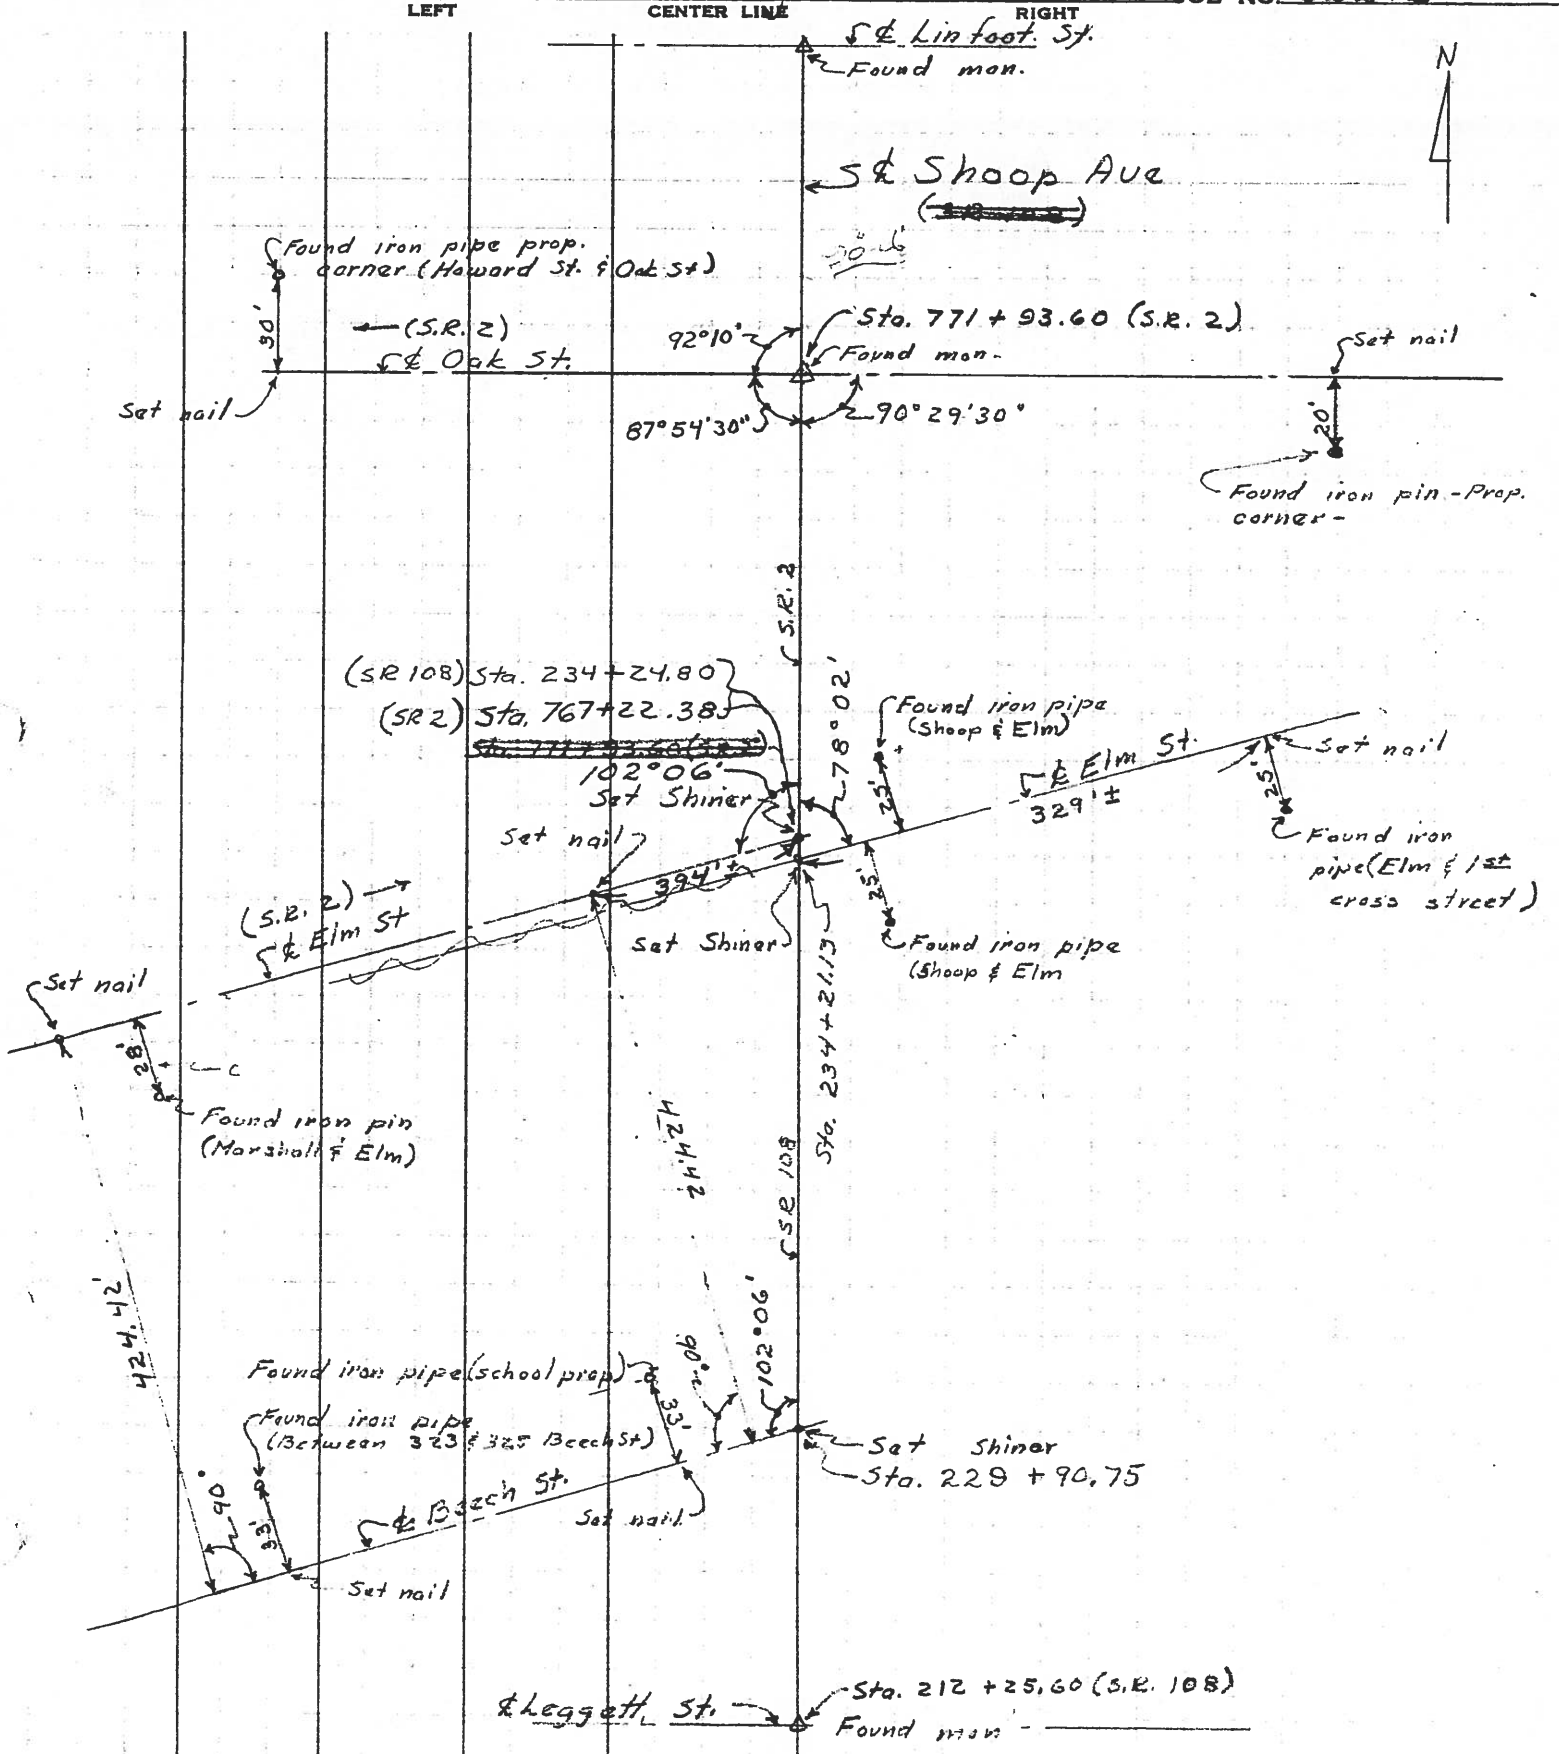 LEFT
CENTER LINE
RIGHT
℄ Linfoot. St.
Found mon.
N
℄ Shoop Ave
Found iron pipe prop.
corner (Howard St. & Oak St)
30'
(S.R. 2)
℄ Oak St.
Set nail
92°10'
Sta. 771 + 93.60 (S.R. 2)
Found mon.
87°54'30"
90°29'30"
Set nail
20'
Found iron pin - Prop.
corner -
S.R. 2
(SR 108) Sta. 234+24.80
(SR 2) Sta. 767+22.38
Sta. 771+93.60 (S.R. 2)
102°06'
Set Shiner
78°02'
Found iron pipe
(Shoop & Elm)
25'
℄ Elm St.
329'±
Set nail
25'
Found iron
pipe (Elm & 1st
cross street)
Set nail
394'±
(S.R. 2)
℄ Elm St
Set Shiner
25'
Found iron pipe
(Shoop & Elm
Sta. 234+21.13
Set nail
28'
C
Found iron pin
(Marshall & Elm)
424.42
SR 108
424.42'
102°06'
90°
Found iron pipe (school prop)
33'
Found iron pipe
(Between 323 & 325 Beech St)
Set Shiner
Sta. 229 + 90.75
90°
33'
℄ Beech St.
Set nail
Set nail
℄ Leggett St.
Sta. 212 + 25.60 (S.R. 108)
Found mon -